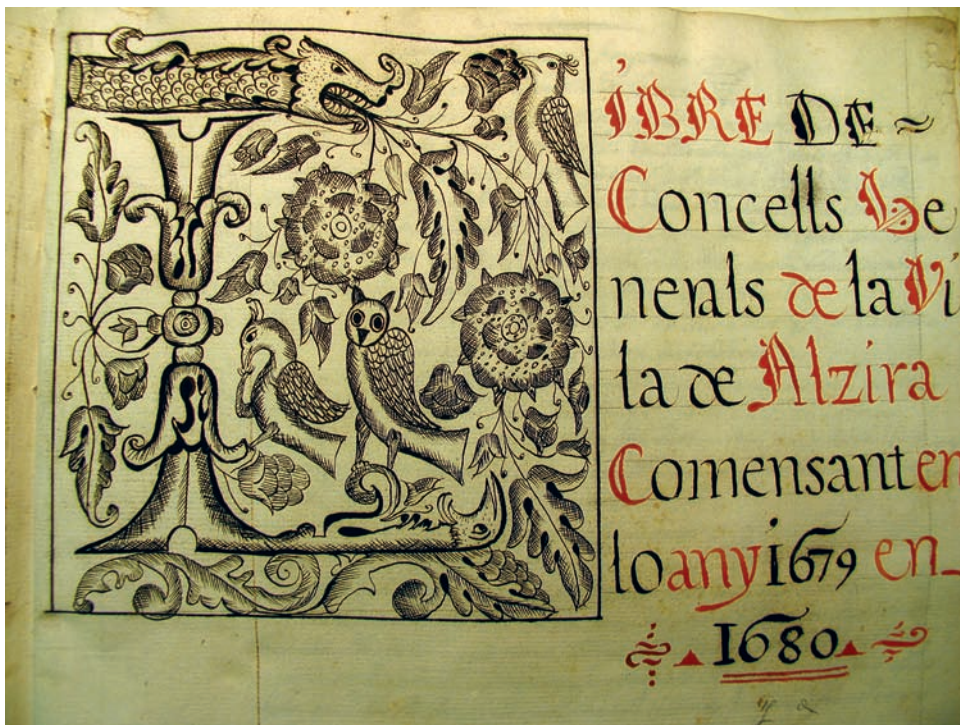 LIBRE DE ~
Concells Ge
nerals de la Vi
la de Alzira
Comensant en
lo any 1679 en
1680